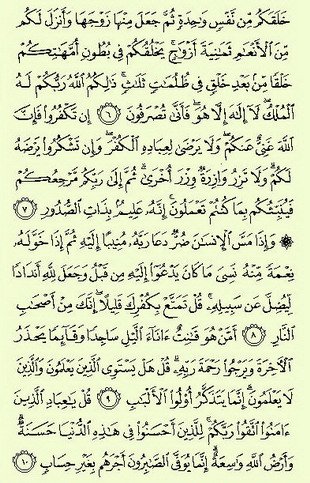 خَلَقَكُم مِّن نَّفْسٍ وَٰحِدَةٍ ثُمَّ جَعَلَ مِنْهَا زَوْجَهَا وَأَنزَلَ لَكُم
مِّنَ ٱلْأَنْعَٰمِ ثَمَٰنِيَةَ أَزْوَٰجٍ ۚ يَخْلُقُكُمْ فِى بُطُونِ أُمَّهَٰتِكُمْ
خَلْقًا مِّنۢ بَعْدِ خَلْقٍ فِى ظُلُمَٰتٍ ثَلَٰثٍ ۚ ذَٰلِكُمُ ٱللَّهُ رَبُّكُمْ لَهُ
ٱلْمُلْكُ ۖ لَآ إِلَٰهَ إِلَّا هُوَ ۖ فَأَنَّىٰ تُصْرَفُونَ ٦ إِن تَكْفُرُوا۟ فَإِنَّ
ٱللَّهَ غَنِىٌّ عَنكُمْ ۖ وَلَا يَرْضَىٰ لِعِبَادِهِ ٱلْكُفْرَ ۖ وَإِن تَشْكُرُوا۟ يَرْضَهُ
لَكُمْ ۗ وَلَا تَزِرُ وَازِرَةٌ وِزْرَ أُخْرَىٰ ۗ ثُمَّ إِلَىٰ رَبِّكُم مَّرْجِعُكُمْ
فَيُنَبِّئُكُم بِمَا كُنتُمْ تَعْمَلُونَ ۚ إِنَّهُۥ عَلِيمٌۢ بِذَاتِ ٱلصُّدُورِ ٧
۞ وَإِذَا مَسَّ ٱلْإِنسَٰنَ ضُرٌّ دَعَا رَبَّهُۥ مُنِيبًا إِلَيْهِ ثُمَّ إِذَا خَوَّلَهُۥ
نِعْمَةً مِّنْهُ نَسِىَ مَا كَانَ يَدْعُوٓا۟ إِلَيْهِ مِن قَبْلُ وَجَعَلَ لِلَّهِ أَندَادًا
لِّيُضِلَّ عَن سَبِيلِهِۦ ۚ قُلْ تَمَتَّعْ بِكُفْرِكَ قَلِيلًا ۖ إِنَّكَ مِنْ أَصْحَٰبِ
ٱلنَّارِ ٨ أَمَّنْ هُوَ قَٰنِتٌ ءَانَآءَ ٱلَّيْلِ سَاجِدًا وَقَآئِمًا يَحْذَرُ
ٱلْءَاخِرَةَ وَيَرْجُوا۟ رَحْمَةَ رَبِّهِۦ ۗ قُلْ هَلْ يَسْتَوِى ٱلَّذِينَ يَعْلَمُونَ وَٱلَّذِينَ
لَا يَعْلَمُونَ ۗ إِنَّمَا يَتَذَكَّرُ أُو۟لُوا۟ ٱلْأَلْبَٰبِ ٩ قُلْ يَٰعِبَادِ ٱلَّذِينَ
ءَامَنُوا۟ ٱتَّقُوا۟ رَبَّكُمْ ۚ لِلَّذِينَ أَحْسَنُوا۟ فِى هَٰذِهِ ٱلدُّنْيَا حَسَنَةٌ ۗ
وَأَرْضُ ٱللَّهِ وَٰسِعَةٌ ۗ إِنَّمَا يُوَفَّى ٱلصَّٰبِرُونَ أَجْرَهُم بِغَيْرِ حِسَابٍ ١٠